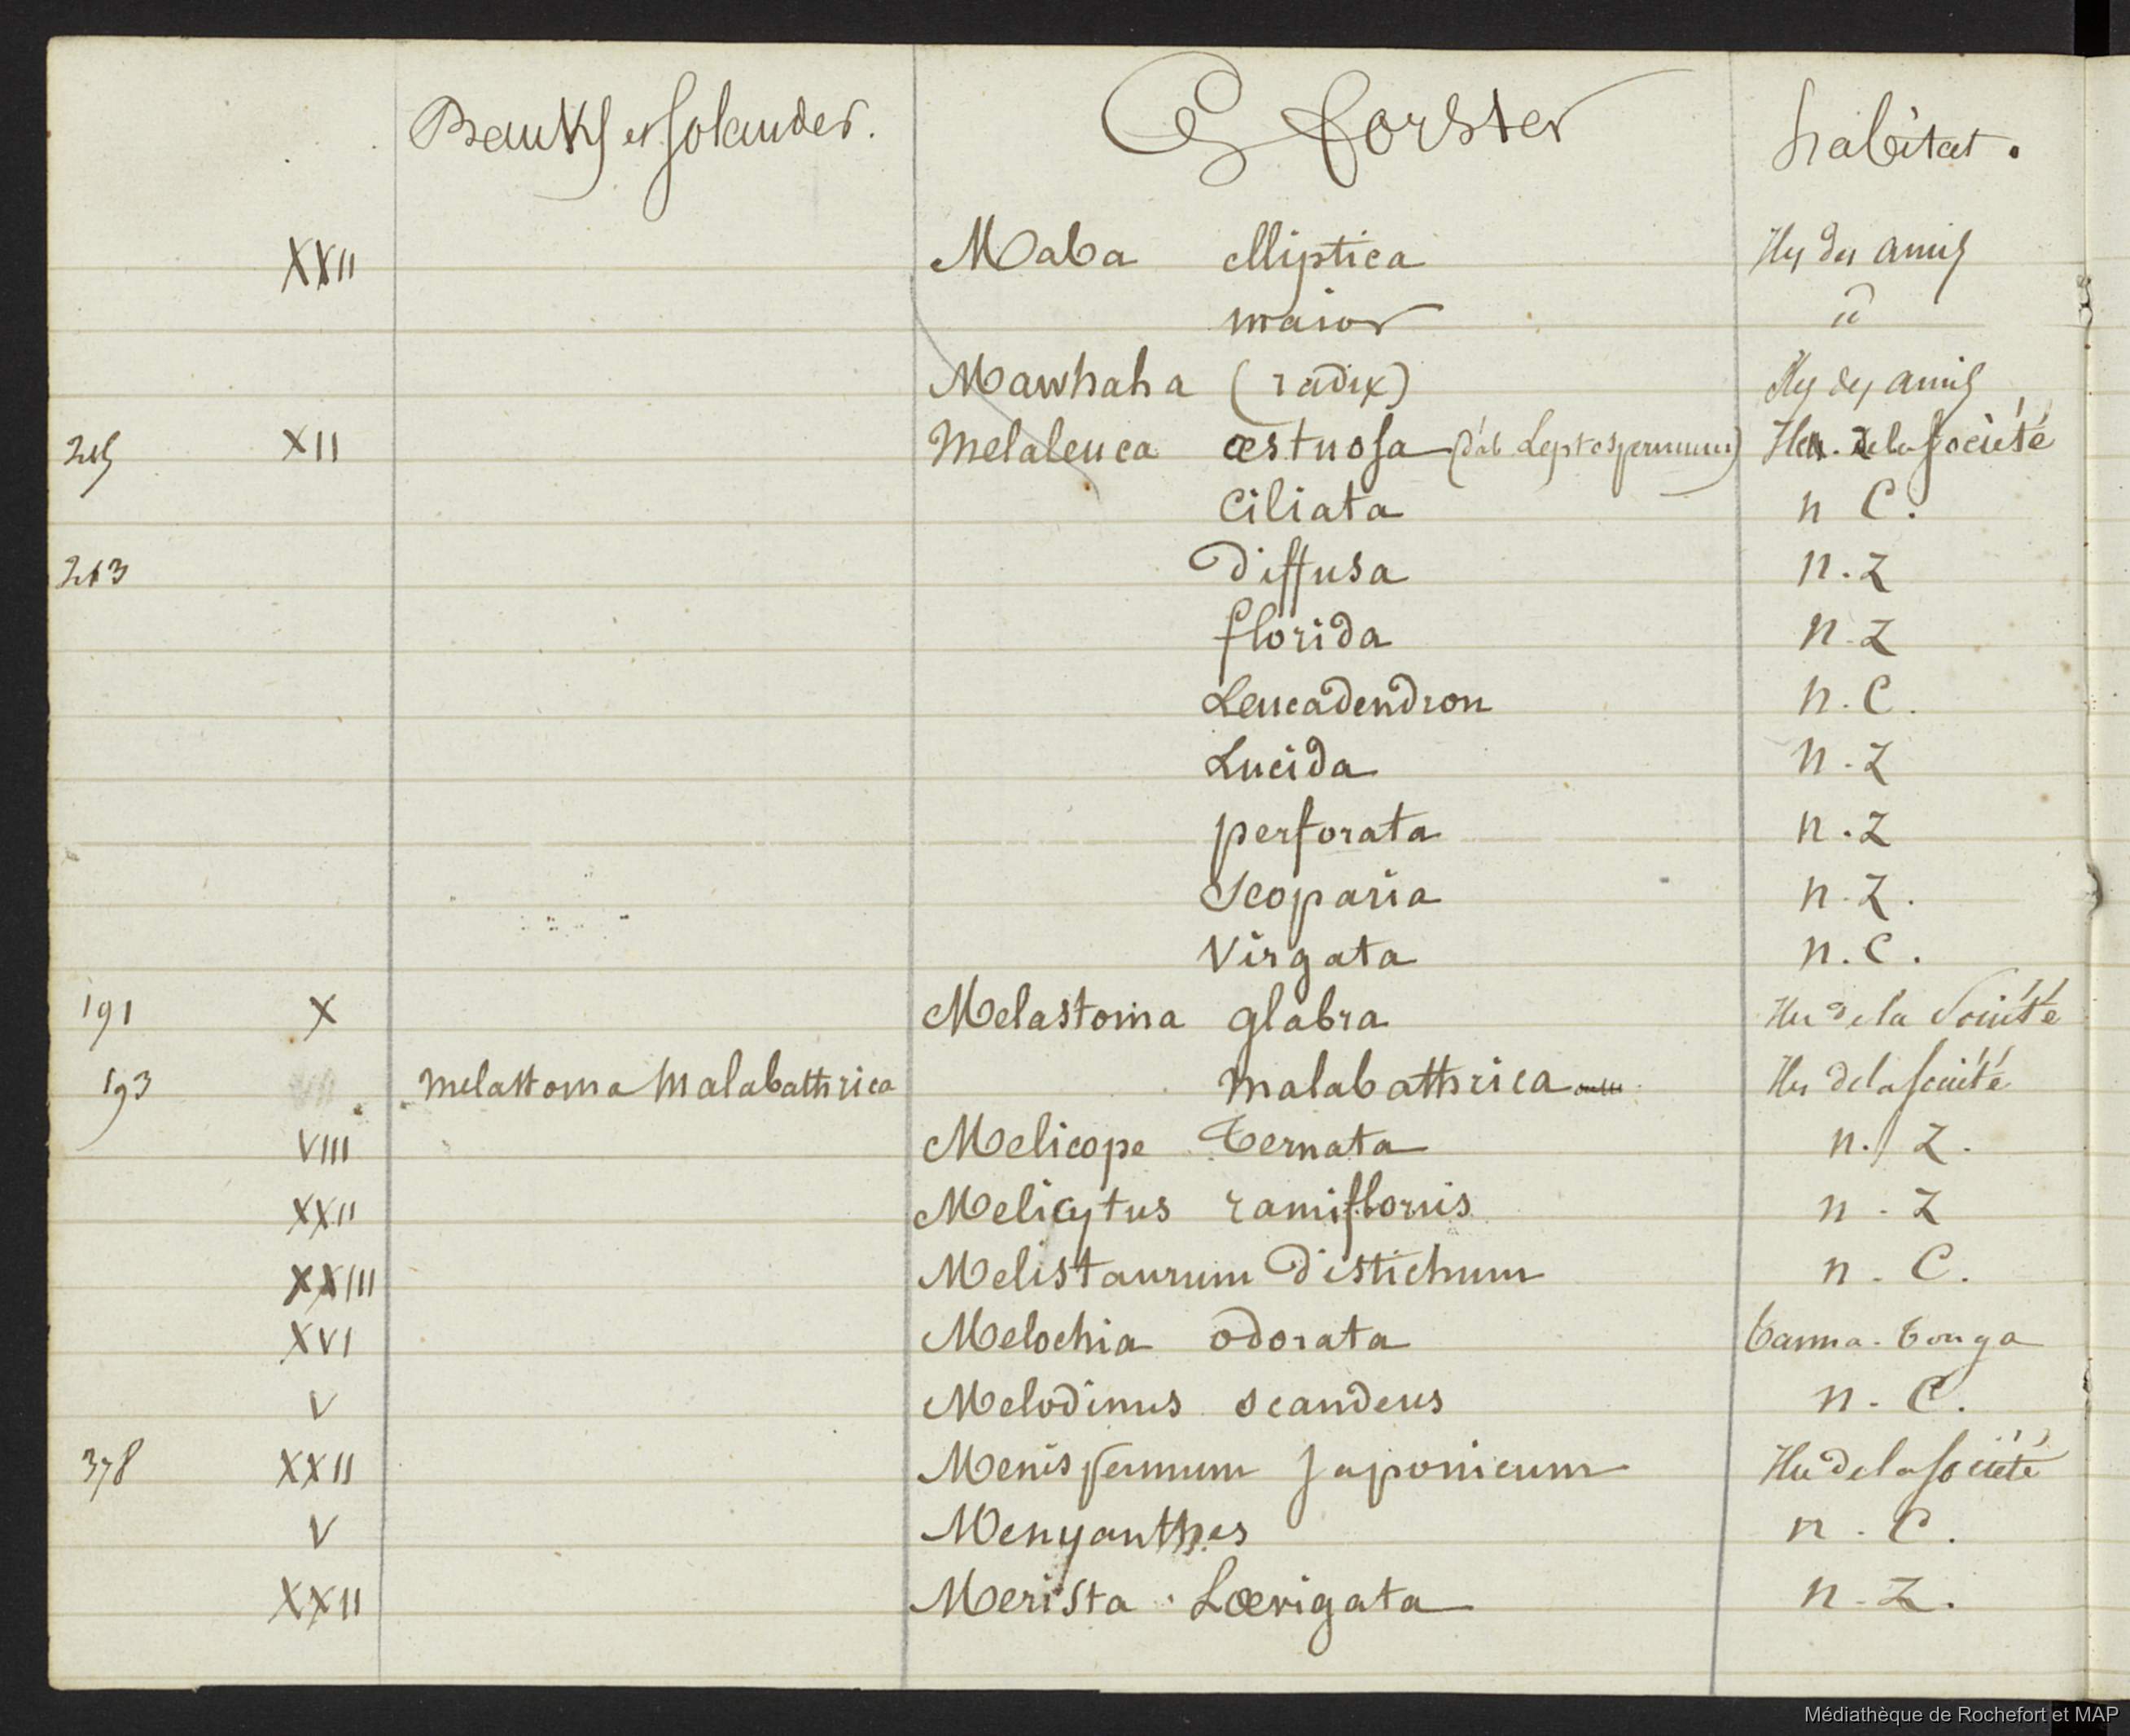 Banks et Solander. G forster habitat.
XXII Maba elliptica Iles des amis
maior id
Mawhaha (radix) Iles des amis
215 XII Melaleuca æstuosa (d'ab Leptospermum) Iles de la Société
Ciliata n C.
213 Diffusa n.Z
florida n.Z
Leucadendron n.C.
Lucida n.Z
perforata n.Z
Scoparia n.Z.
Virgata n.C.
191 X Melastoma glabra Iles de la Société
193 VII Melastoma Malabathrica malabathrica Iles de la Société
VIII Melicope Ternata n. Z.
XXII Melicytus ramiflorus n.Z
XXIII Melistaurum Distichum n.C.
XVI Melochia odorata Tanna. Tonga
V Melodinus scandens n.C.
378 XXII Menispermum Japonicum Iles de la Société
V Menyanthes n.C.
XXII Merista Lævigata n.Z.
Médiathèque de Rochefort et MAP